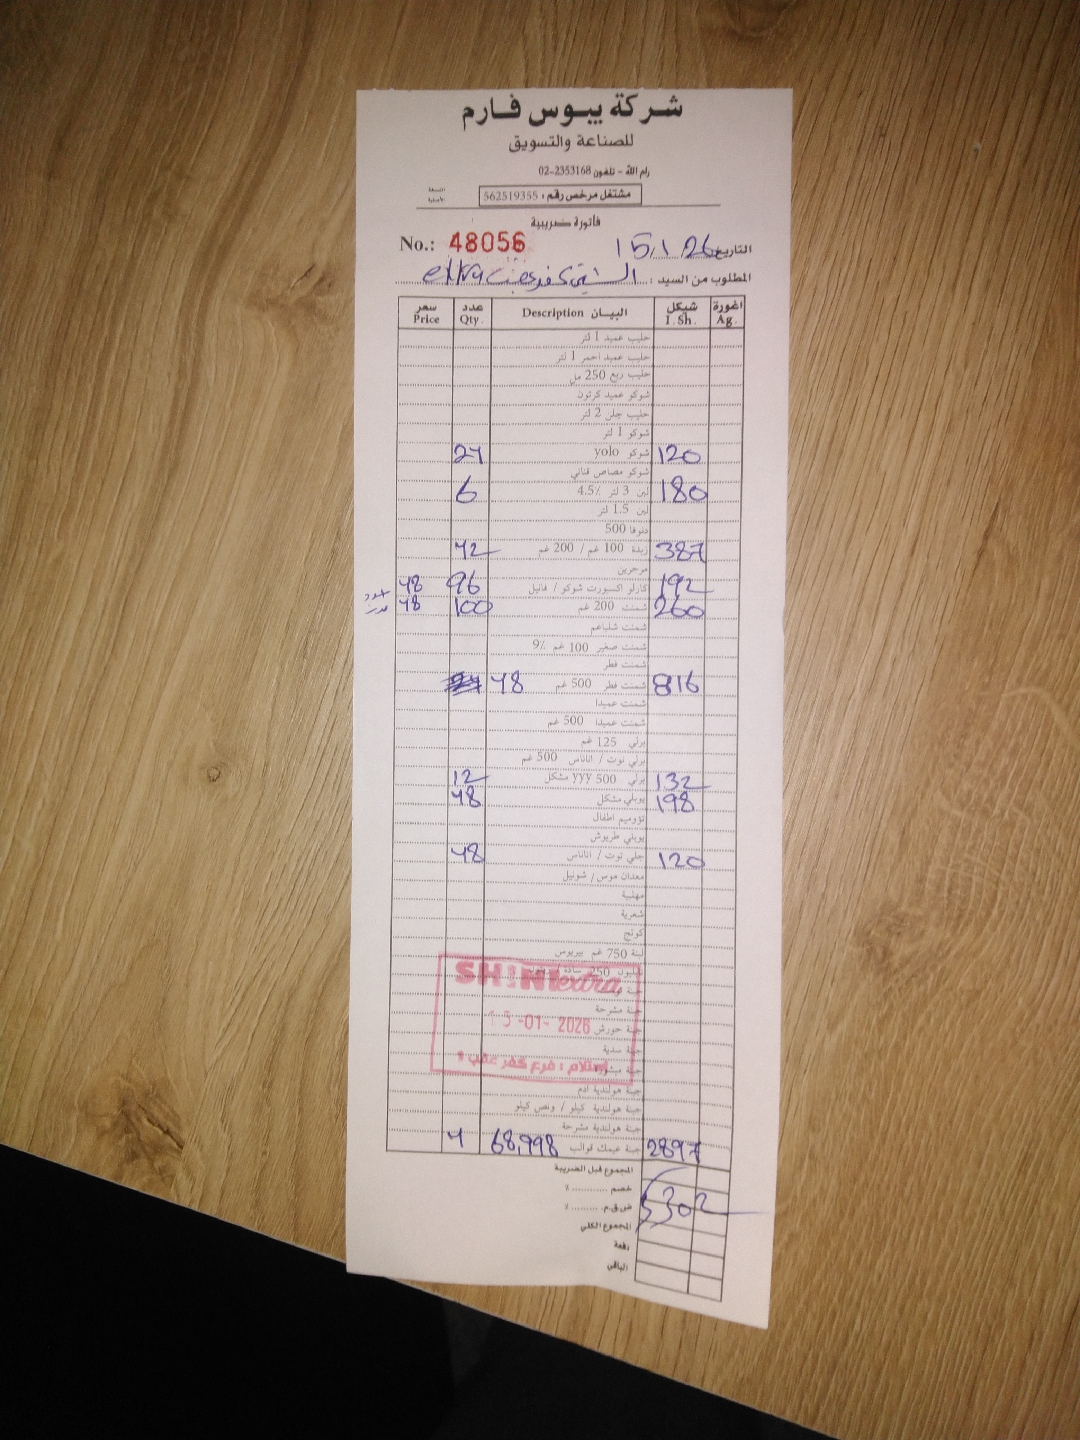 شركة يبوس فارم
للصناعة والتسويق
رام الله - تلفون 2353168-02
مشتغل مرخص رقم : 562519355
فاتورة ضريبية
No.: 48056 التاريخ 15/1/26
المطلوب من السيد : extra
سعر Price عدد Qty. البيـــان Description شيكل I.Sh. اغورة Ag.
حليب عميد 1 لتر
حليب عميد احمر 1 لتر
حليب ربع 250 مل
شوكو عميد كرتون
حليب جلن 2 لتر
شوكو 1 لتر
24 شوكو yolo 120
شوكو مصاص قناني
6 لبن 3 لتر 4.5٪ 180
لبن 1.5 لتر
500
42 زبدة 100 غم / 200 غم 387
مرجرين
48 96 كارلو اكسبورت شوكو / فانيل 192
48 100 شمنت 200 غم 260
شمنت شلباعم
شمنت صغير 100 غم 9٪
شمنت فطر
48 شمنت فطر 500 غم 816
شمنت عميدا
شمنت عميدا 500 غم
برلي 125 غم
برلي توت / اناناس 500 غم
12 برلي 500 yyy مشكل 132
48 يوبلي مشكل 198
تؤوميم اطفال
يوبلي طربوش
48 جلي توت / اناناس 120
معدان موس / شونيل
مهلبية
شعرية
كوتج
لبنة 750 غم بيريوس
250
جبنة
جبنة مشرحة
جبنة حورش
جبنة صدية
جبنة
جبنة هولندية ادم
جبنة هولندية كيلو / ونص كيلو
جبنة هولندية مشرحة
4 68,998 جبنة عيمك قوالب 2897
SHINI extra
15-01-2026
إستلام : فرع كفر عقب
المجموع قبل الضريبة
خصم ............ ٪
ض.ق.م. ......... ٪ 5302
المجموع الكلي
دفعة
الباقي